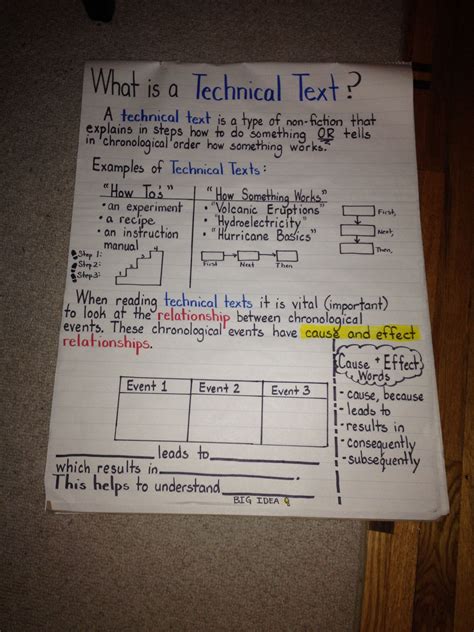 What is a Technical Text?
A technical text is a type of non-fiction that
explains in steps how to do something OR tells
in chronological order how something works.
Examples of Technical Texts:
"How To's"
• an experiment
• a recipe
• an instruction
manual
Step 1:
Step 2:
Step 3:
"How Something Works"
• "Volcanic Eruptions"
• "Hydroelectricity"
• "Hurricane Basics"
First Next Then
First,
Next,
Then,
When reading technical texts it is vital (important)
to look at the relationship between chronological
events. These chronological events have cause and effect
relationships.
Event 1 Event 2 Event 3
Cause + Effect
Words
- cause, because
- leads to
- results in
- consequently
- subsequently
leads to
which results in
This helps to understand
BIG IDEA